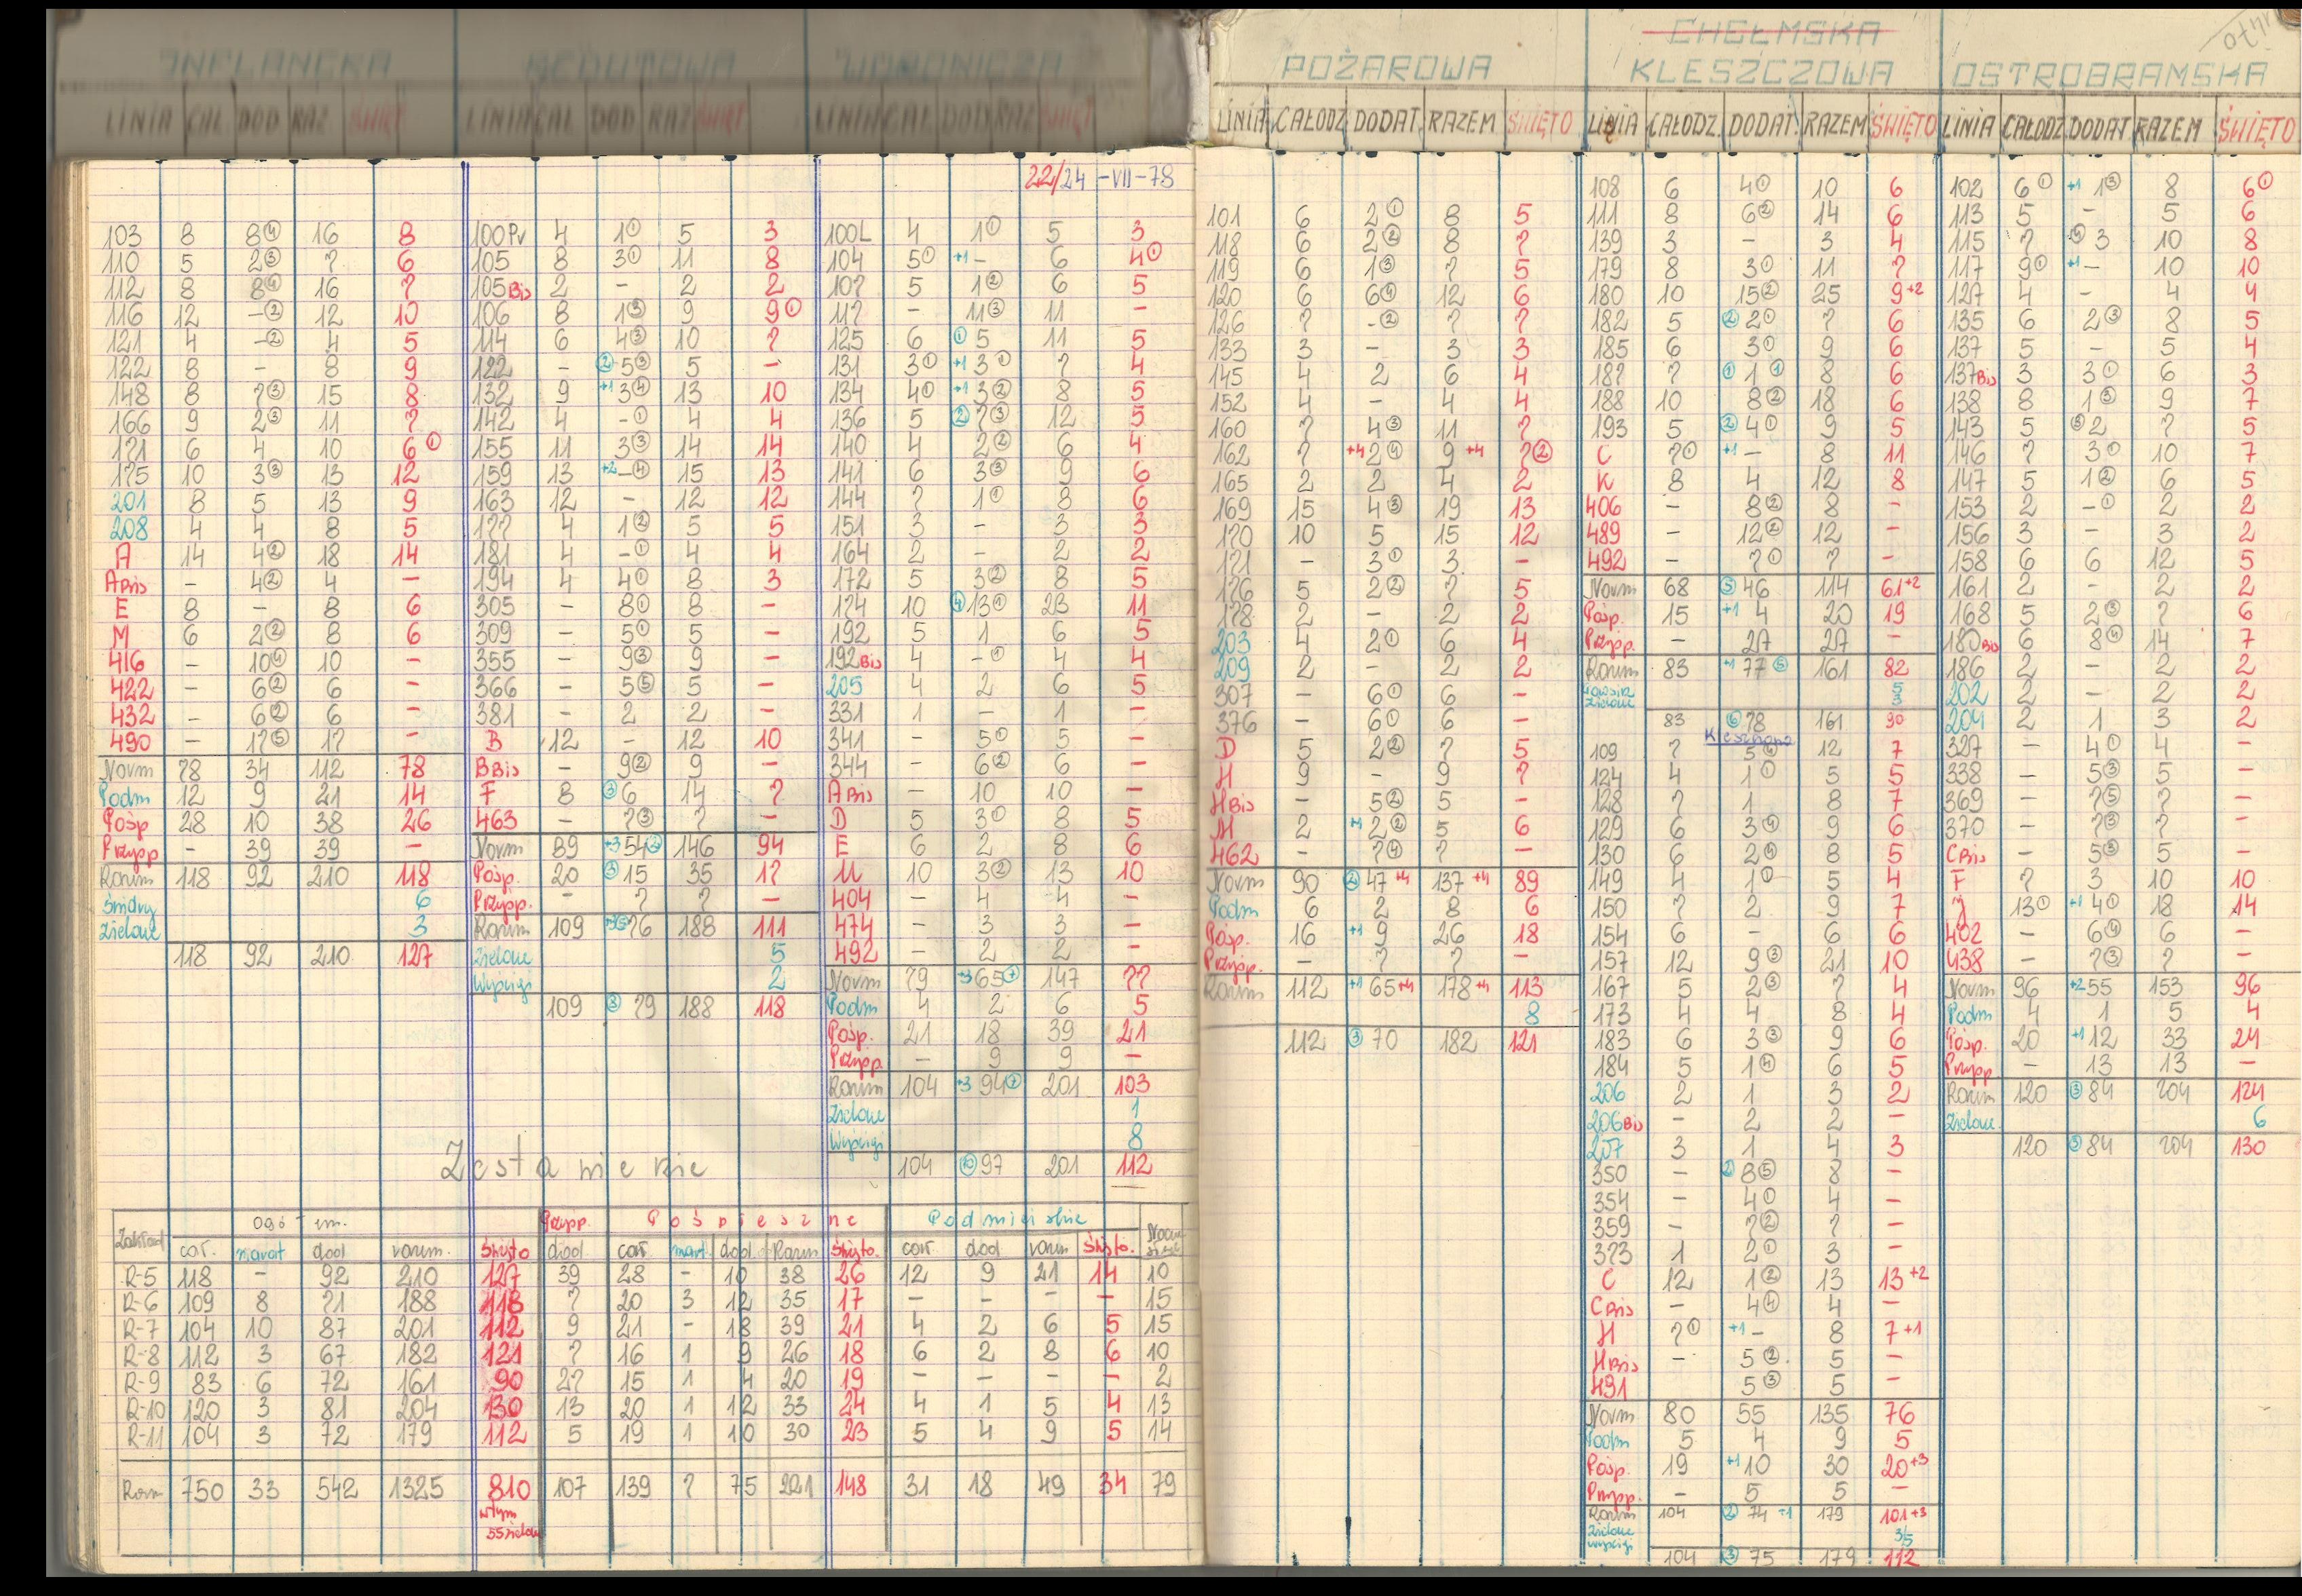 INFLANCKA
LINIA CAŁ DOD RAZ ŚWIĘT
103 8 8④ 16 8
110 5 2③ 7 6
112 8 8④ 16 7
116 12 -② 12 10
121 4 -② 4 5
122 8 - 8 9
148 8 7③ 15 8
166 9 2③ 11 7
171 6 4 10 6①
175 10 3③ 13 12
201 8 5 13 9
208 4 4 8 5
A 14 4② 18 14
A Bis - 4② 4 -
E 8 - 8 6
M 6 2② 8 6
416 - 10④ 10 -
422 - 6② 6 -
432 - 6② 6 -
490 - 17⑤ 17 -
Norm 78 34 112 78
Podm 12 9 21 14
Pośp 28 10 38 26
Przysp - 39 39 -
Razem 118 92 210 118
6
Zielone 3
118 92 210 127
REDUTOWA
LINIA CAŁ DOD RAZ ŚWIĘT
100Pr 4 1① 5 3
105 8 3① 11 8
105Bis 2 - 2 2
106 8 1③ 9 9①
114 6 4③ 10 7
122 - ②5③ 5 -
132 9 +1 3④ 13 10
142 4 -① 4 4
155 11 3③ 14 14
159 13 +2 -④ 15 13
163 12 - 12 12
177 4 1② 5 5
181 4 -① 4 4
194 4 4① 8 3
305 - 8① 8 -
309 - 5① 5 -
355 - 9③ 9 -
366 - 5⑤ 5 -
381 - 2 2 -
B 12 - 12 10
B Bis - 9② 9 -
F 8 ③6 14 7
463 - 7③ 7 -
Norm 89 +3 54② 146 94
Pośp. 20 ③15 35 17
Przysp. - 7 7 -
Razem 109 76 188 111
Zielone 5
Wyścigi 2
109 ③ 79 188 118
WORONICZA
LINIA CAŁ DOD RAZ ŚWIĘT
22/24 -VII-78
100L 4 1① 5 3
104 5① +1 - 6 4①
107 5 1② 6 5
117 - 11③ 11 -
125 6 ①5 11 5
131 3① +1 3① 7 4
134 4① +1 3② 8 5
136 5 ②7③ 12 5
140 4 2② 6 4
141 6 3③ 9 6
144 7 1① 8 6
151 3 - 3 3
164 2 - 2 2
172 5 3② 8 5
174 10 ④13① 23 11
192 5 1 6 5
192Bis 4 -① 4 4
205 4 2 6 5
331 1 - 1 -
341 - 5① 5 -
344 - 6② 6 -
A Bis - 10 10 -
D 5 3① 8 5
E 6 2 8 6
U 10 3② 13 10
404 - 4 4 -
474 - 3 3 -
492 - 2 2 -
Norm 79 +3 65⑦ 147 77
Podm 4 2 6 5
Pośp. 21 18 39 21
Przysp. - 9 9 -
Razem 104 +3 94⑦ 201 103
Zielone 1
Wyścigi 8
104 ⑩97 201 112
Zestawienie
Zakład Ogółem. Przysp. Pospieszne Podmiejskie
cał. nawrot dod razem. Święto dod. cał nawr. dod. Razem Święto. cał dod razem Święto.
R-5 118 - 92 210 127 39 28 - 10 38 26 12 9 21 14 10
R-6 109 8 71 188 118 7 20 3 12 35 17 - - - - 15
R-7 104 10 87 201 112 9 21 - 18 39 21 4 2 6 5 15
R-8 112 3 67 182 121 7 16 1 9 26 18 6 2 8 6 10
R-9 83 6 72 161 90 27 15 1 4 20 19 - - - - 2
R-10 120 3 81 204 130 13 20 1 12 33 24 4 1 5 4 13
R-11 104 3 72 179 112 5 19 1 10 30 23 5 4 9 5 14
Razem 750 33 542 1325 810 107 139 7 75 221 148 31 18 49 34 79
w tym
55 zielone
POŻAROWA
LINIA CAŁODZ DODAT. RAZEM ŚWIĘTO
101 6 2① 8 5
118 6 2② 8 7
119 6 1③ 7 5
120 6 6④ 12 6
126 7 -② 7 7
133 3 - 3 3
145 4 2 6 4
152 4 - 4 4
160 7 4③ 11 7
162 7 +4 2④ 9+4 7②
165 2 2 4 2
169 15 4③ 19 13
170 10 5 15 12
171 - 3① 3 -
176 5 2② 7 5
178 2 - 2 2
203 4 2① 6 4
209 2 - 2 2
307 - 6① 6 -
376 - 6① 6 -
D 5 2② 7 5
H 9 - 9 7
H Bis - 5② 5 -
M 2 +1 2② 5 6
462 - 7④ 7 -
Norm 90 ②47+4 137+4 89
Podm 6 2 8 6
Pośp. 16 +1 9 26 18
Przysp. - 7 7 -
Razem 112 +1 65+4 178+4 113
8
112 ③70 182 121
CHEŁMSKA
KLESZCZOWA
LINIA CAŁODZ. DODAT. RAZEM ŚWIĘTO
108 6 4① 10 6
111 8 6② 14 6
139 3 - 3 4
179 8 3① 11 7
180 10 15② 25 9+2
182 5 ②2① 7 6
185 6 3① 9 6
187 7 ①1① 8 6
188 10 8② 18 6
193 5 ②4① 9 5
C 7① +1 - 8 11
K 8 4 12 8
406 - 8② 8 -
489 - 12② 12 -
492 - 7① 7 -
Norm 68 ⑤46 114 61+2
Pośp. 15 +1 4 20 19
Przysp. - 27 27 -
Razem 83 +1 77⑤ 161 82
5
Zielone 3
83 ⑥78 161 90
Kleszczowa
109 7 5④ 12 7
124 4 1① 5 5
128 7 1 8 7
129 6 3④ 9 6
130 6 2④ 8 5
149 4 1① 5 4
150 7 2 9 7
154 6 - 6 6
157 12 9③ 21 10
167 5 2③ 7 4
173 4 4 8 4
183 6 3③ 9 6
184 5 1④ 6 5
206 2 1 3 2
206Bis - 2 2 -
207 3 1 4 3
350 - ②8⑤ 8 -
354 - 4① 4 -
359 - 7② 7 -
373 1 2① 3 -
C 12 1② 13 13+2
C Bis - 4④ 4 -
H 7① +1 - 8 7+1
H Bis - 5② 5 -
491 5③ 5 -
Norm 80 55 135 76
Podm 5 4 9 5
Pośp. 19 +1 10 30 20+3
Przysp. - 5 5 -
Razem 104 ②74+1 179 101+3
Zielone 3/5
Wyścigi
104 ③75 179 112
OSTROBRAMSKA
LINIA CAŁODZ DODAT RAZEM ŚWIĘTO
102 6① +1 1③ 8 6①
113 5 - 5 6
115 7 ④3 10 8
117 9① +1 - 10 10
127 4 - 4 4
135 6 2③ 8 5
137 5 - 5 4
137Bis 3 3① 6 3
138 8 1③ 9 7
143 5 ③2 7 5
146 7 3① 10 7
147 5 1② 6 5
153 2 -① 2 2
156 3 - 3 2
158 6 6 12 5
161 2 - 2 2
168 5 2③ 7 6
180Bis 6 8④ 14 7
186 2 - 2 2
202 2 - 2 2
204 2 1 3 2
327 - 4① 4 -
338 - 5③ 5 -
369 - 7⑤ 7 -
370 - 7③ 7 -
C Bis - 5③ 5 -
F 7 3 10 10
J 13① +1 4① 18 14
402 - 6④ 6 -
438 - 7③ 7 -
Norm 96 +2 55 153 96
Podm 4 1 5 4
Pośp. 20 +1 12 33 24
Przysp - 13 13 -
Razem 120 ③84 204 124
Zielone 6
120 ③84 204 130